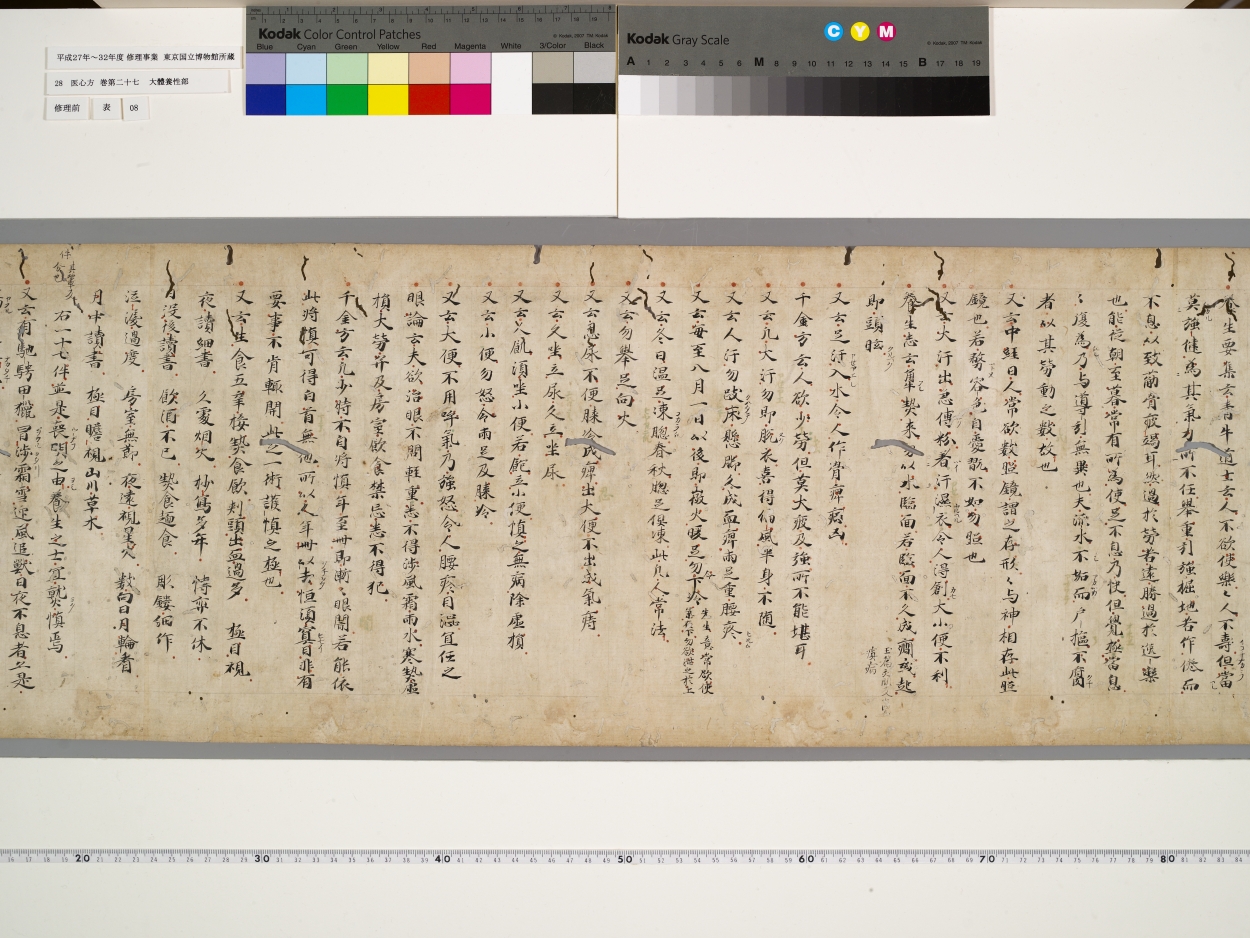 平成27年～32年度 修理事業 東京国立博物館所蔵
28 医心方 巻第二十七 大體養性部
修理前 表 08
Kodak Color Control Patches
© Kodak, 2007 TM: Kodak
Blue Cyan Green Yellow Red Magenta White 3/Color Black
Kodak Gray Scale
C Y M
© Kodak, 2007 TM: Kodak
A 1 2 3 4 5 6 M 8 9 10 11 12 13 14 15 B 17 18 19
養生要集云青牛道士云人不欲使樂樂人不壽但當
莫強健為其氣力所不任舉重引強掘地苦作倦而
不息以致筋骨疲竭耳然過於勞苦遠勝過於逸樂
也能從朝至暮常有所為使足不息乃快但覺極當息
息復為乃与導引無異也夫流水不
者以其勞動之數故也
又云中經曰人常欲數照鏡謂之存形形与神相存此照
鏡也若務容色自愛翫不如勿照也
又云大汗出急傅粉著汗濕衣令人得瘡大小便不利
養生志云
即頭眩
又云足汗入水令人作骨痺病凶
千金方云人欲少勞但莫大疲及強所不能堪耳
又云凡大汗勿即脫衣喜得偏風半身不随
又云人汗勿跂床懸脚久成血痺兩足重腰疼
又云每至八月一日以後即微火暖足勿下冷
又云冬日温足凍腦春秋腦足俱凍此凡人常法
又云勿舉足向火
又云忍尿不便膝冷成痺忍大便不出成氣痔
又云久坐立尿久立坐尿
又云凡飢須坐小便若飽立小便慎之無病除虛損
又云小便勿怒令兩足及膝冷
又云大便不用呼氣乃強怒令人腰疼目澀宜任之
眼論云夫欲治眼不問輕重悉不得涉風霜雨水寒熱虛
損大勞并及房室飲食禁忌悉不得犯
千金方云凡少時不自將慎年至卌即漸漸眼闇若能依
此將慎可得白首無他所以人年卌以去恒須瞑目非有
要事不肯輒開此之一術護慎之極也
又云生食五辛接熱食飲刾頭出血過多 極目視
夜讀細書 久處烟火 抄寫多年 博弈不休
日没後讀書 飲酒不已 熱食麺食 彫鏤細作
泣淚過度 房室無節 夜遠視星火 數向日月輪看
月中讀書 極目瞻視山川草木
右一十七件並是喪明之由養生之士宜熟慎焉
又云有馳騁田獵冒涉霜雪迎風追獸日夜不息者亦是
20 30 40 50 60 70 80